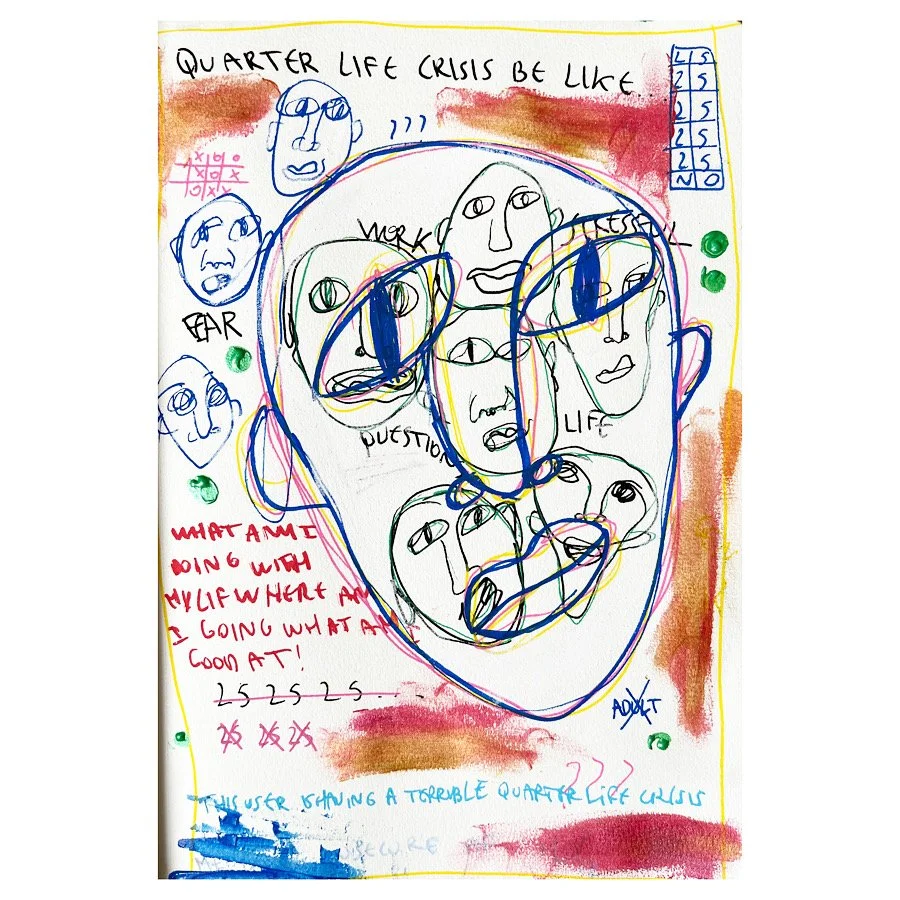 QUARTER LIFE CRISIS BE LIKE...
25
25
25
25
25
NO
???
X O O
X O X
O X X
WORK
STRESSFUL
FEAR
QUESTION
LIFE
WHAT AM I
DOING WITH
MY LIF WHERE AM
I GOING WHAT AM I
GOOD AT!
25 25 25...
25 25 25
ADULT
???
THIS USER IS HAVING A TERRIBLE QUARTER LIFE CRISIS